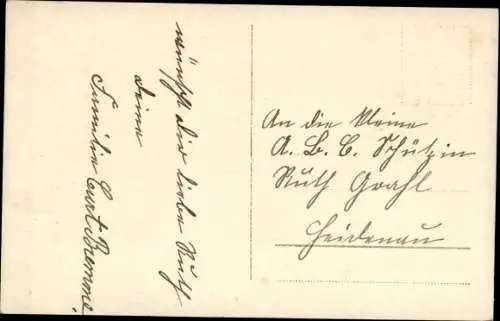 wünscht Dir liebe Ruth
deine
Familie Curt Bremme.
An die kleine
A. B. C. Schützin
Ruth Grahl
Heidenau